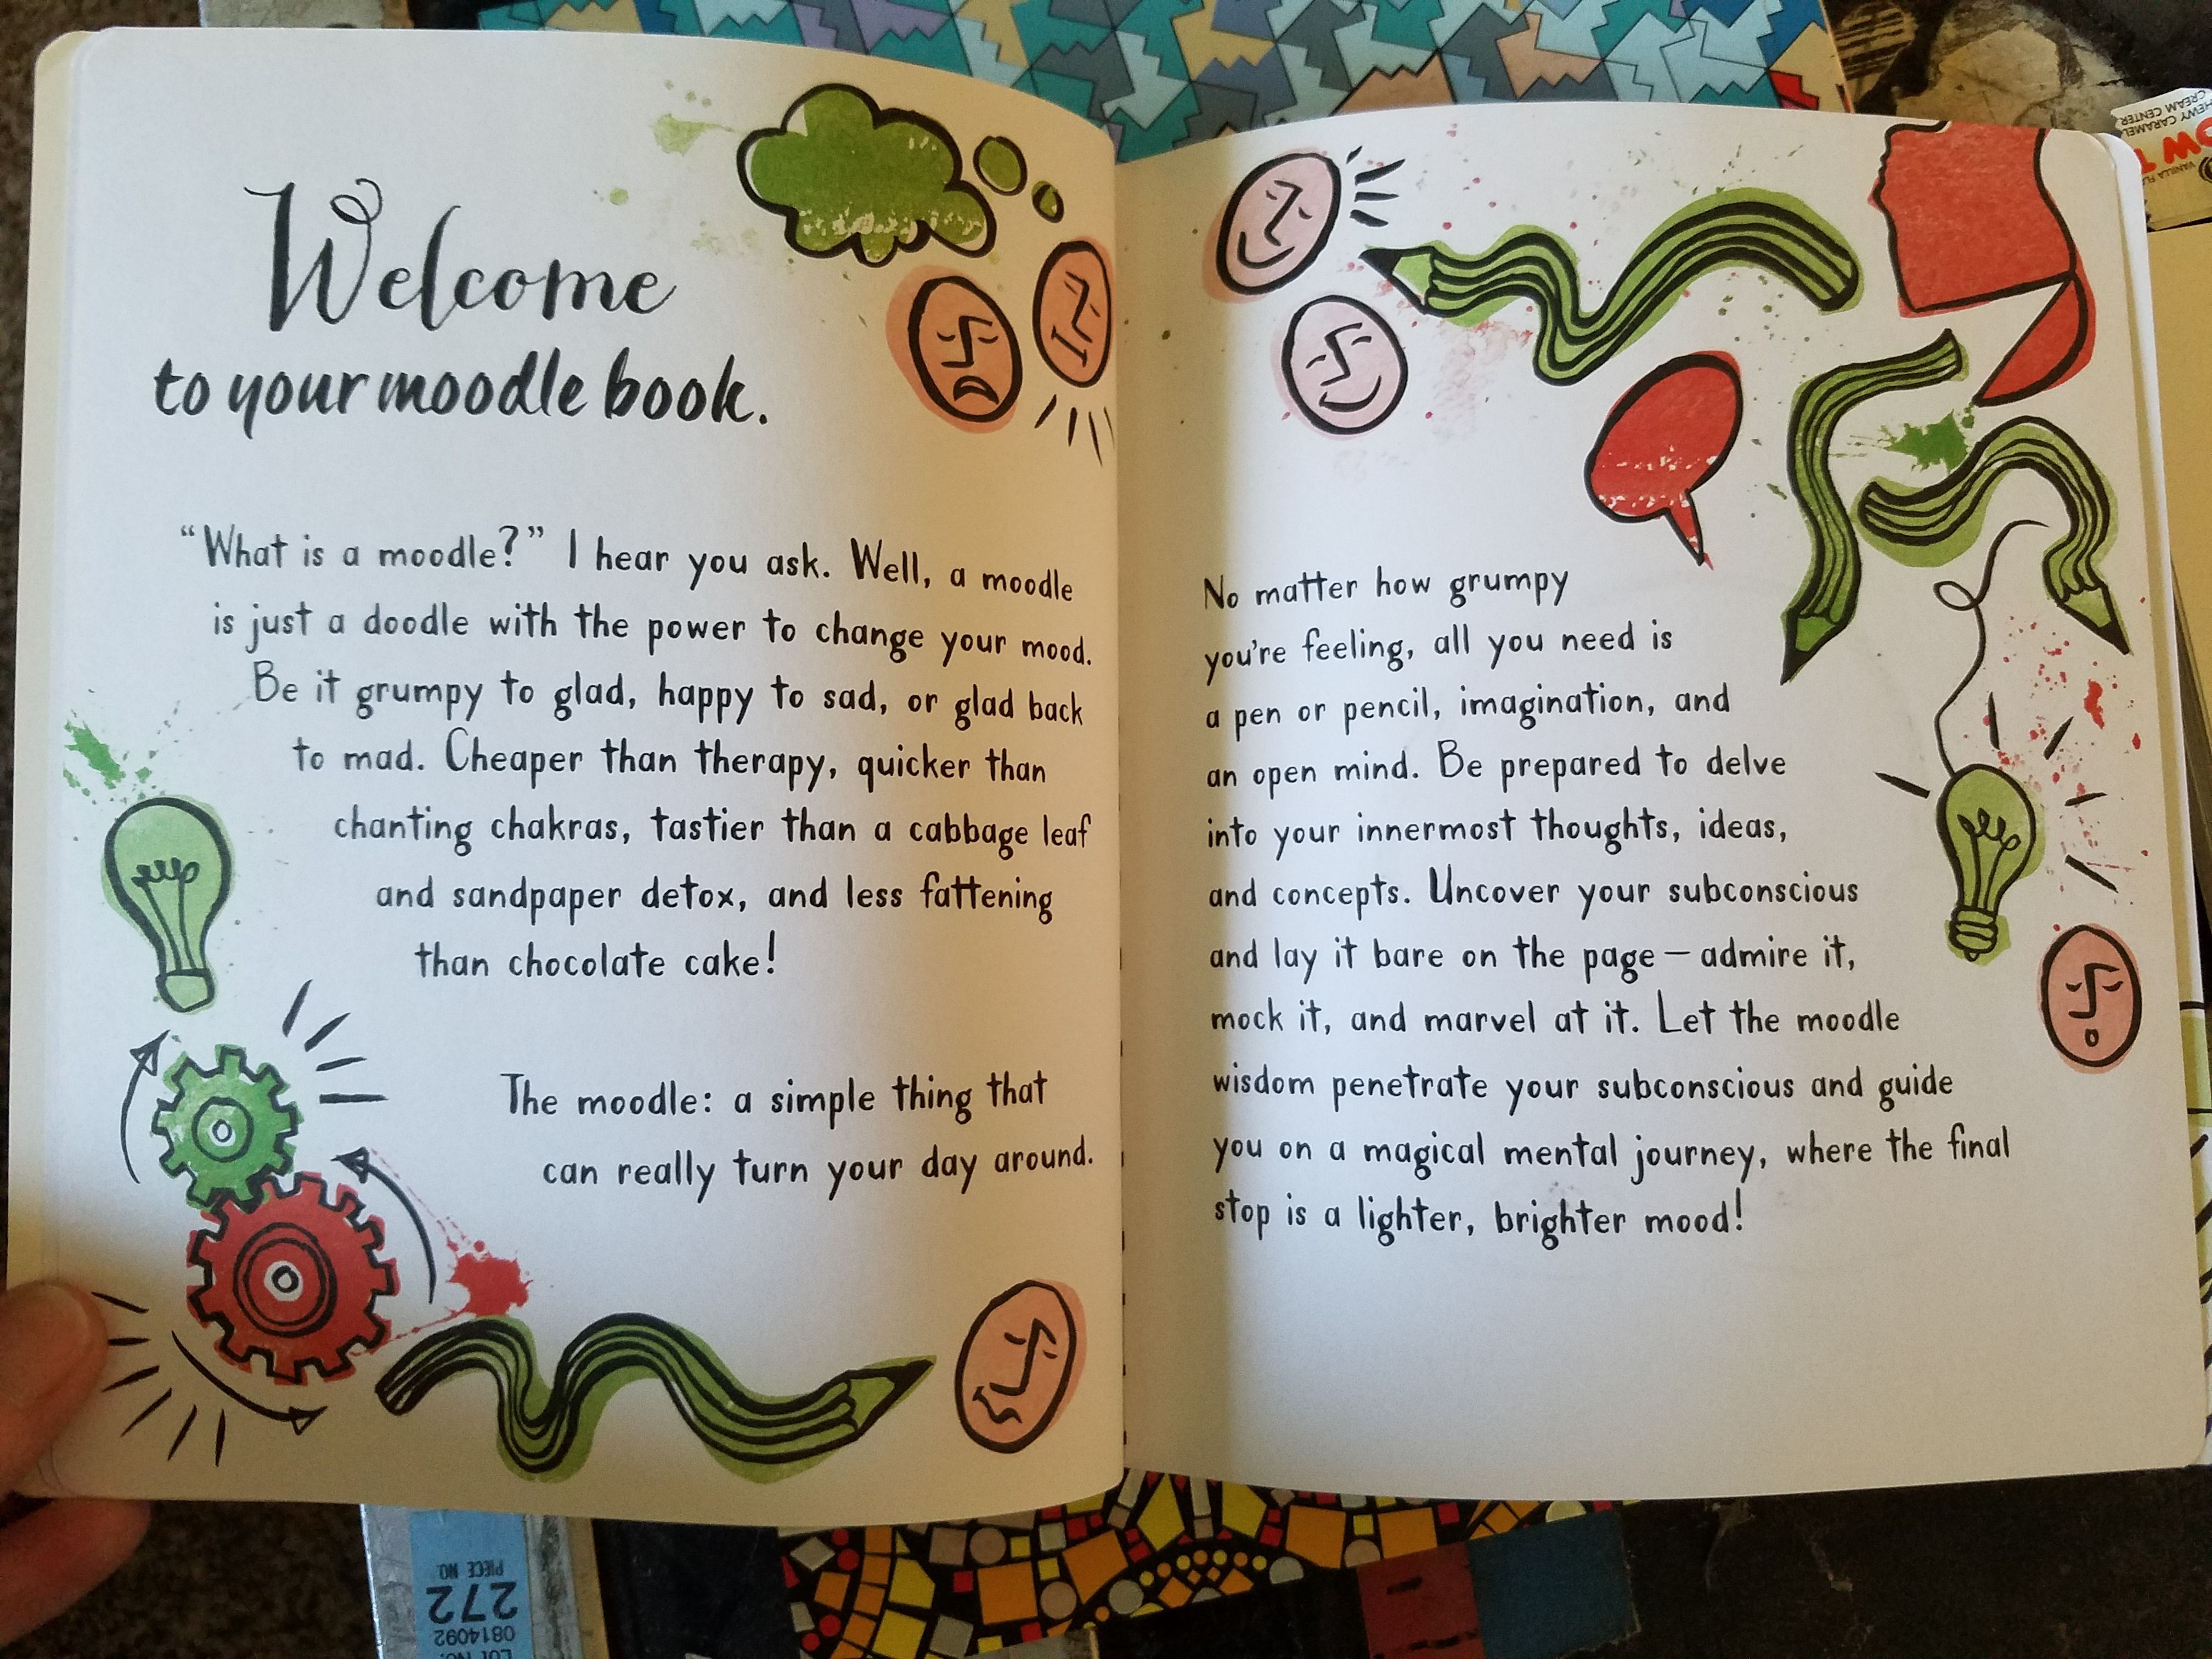 Welcome
to your moodle book.
“What is a moodle?” I hear you ask. Well, a moodle
is just a doodle with the power to change your mood.
Be it grumpy to glad, happy to sad, or glad back
to mad. Cheaper than therapy, quicker than
chanting chakras, tastier than a cabbage leaf
and sandpaper detox, and less fattening
than chocolate cake!
The moodle: a simple thing that
can really turn your day around.
No matter how grumpy
you’re feeling, all you need is
a pen or pencil, imagination, and
an open mind. Be prepared to delve
into your innermost thoughts, ideas,
and concepts. Uncover your subconscious
and lay it bare on the page – admire it,
mock it, and marvel at it. Let the moodle
wisdom penetrate your subconscious and guide
you on a magical mental journey, where the final
stop is a lighter, brighter mood!
CREAM CENTER
PIECE NO.
272
0814092
LOT NO.